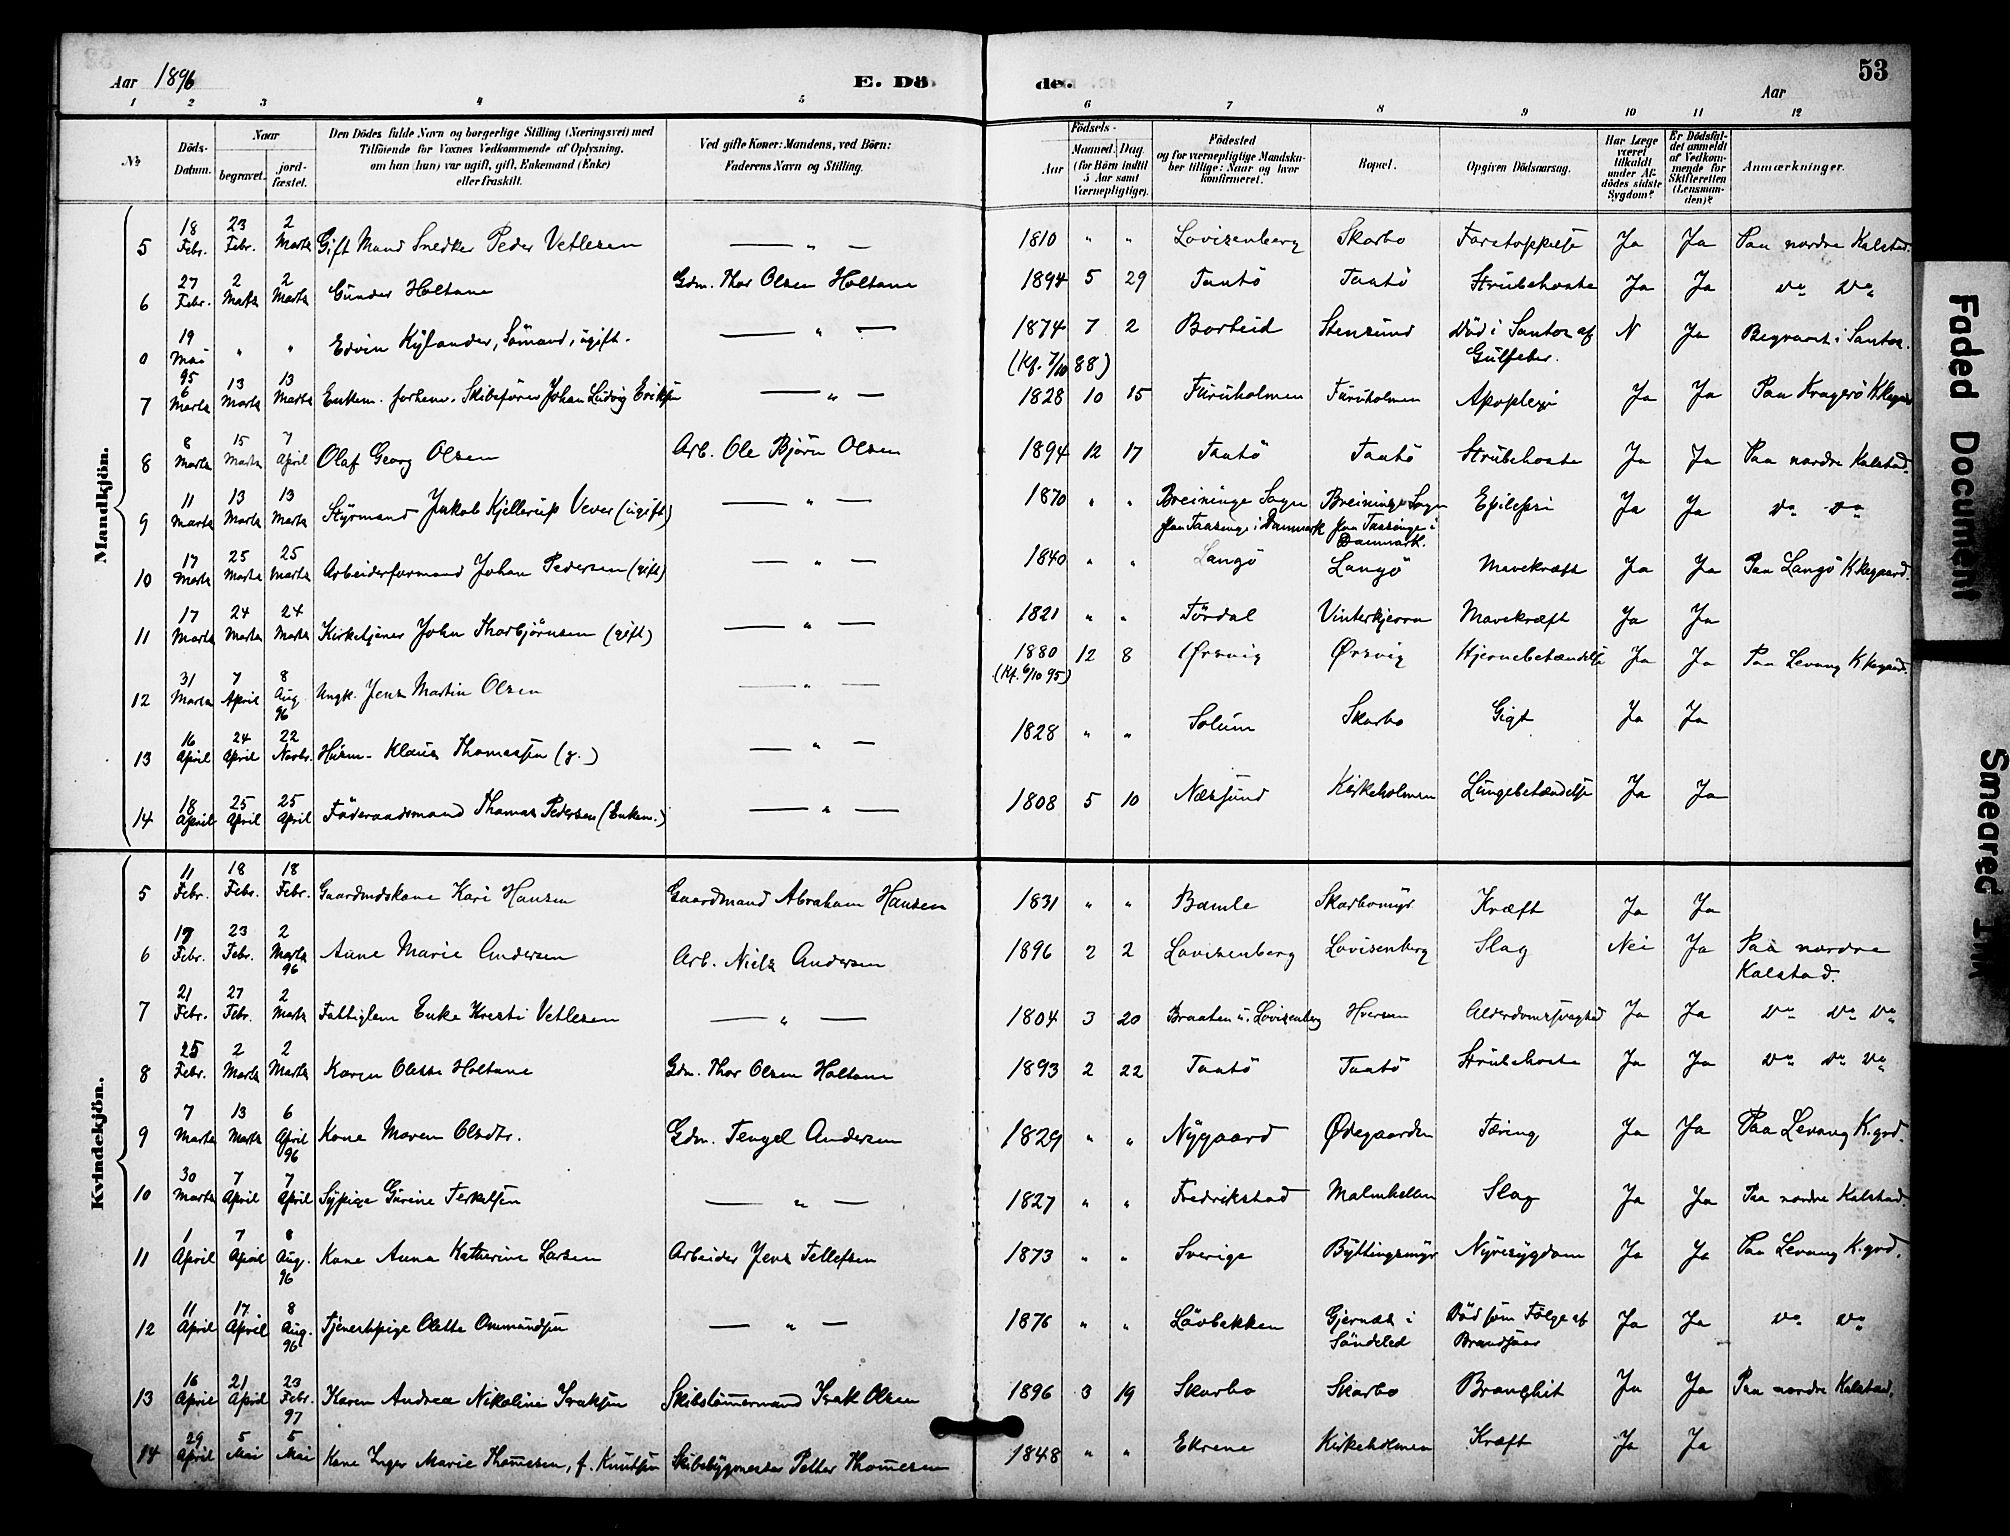 Aar 1896 E. Dö de. Aar 53
1 2 3 4 5 6 7 8 9 10 11 12
No Döds-Datum. Naar begravet. jordfæstet. Den Dödes fulde Navn og borgerlige Stilling (Næringsvei) med Tilföiende for Voxnes Vedkommende af Oplysning, om han (hun) var ugift, gift, Enkemand (Enke) eller fraskilt. Ved gifte Koner: Mandens, ved Börn: Faderens Navn og Stilling. Födsels- Aar Maaned. Dag. (for Börn indtil 5 Aar samt Værnepligtige). Födested og for værnepligtige Mandskaber tillige: Naar og hvor konfirmeret. Bopæl. Opgiven Dödsaarsag. Har Læge været tilkaldt under Afdödes sidste Sygdom? Er Dödsfaldet anmeldt af Vedkommende for Skifteretten (Lensmanden)? Anmærkninger.
Mandkjön.
5 18 Febr. 23 Febr. 2 Marts Gift Mand Snedker Peder Vetlesen — " — 1810 " " Lovisenberg Skarbo Forstoppelse Ja Ja Paa nordre Kalstad.
6 27 Febr. 2 Marts 2 Marts Gunder Holtane Gdm. Thor Olsen Holtane 1894 5 29 Taatö Taatö Strubehoste Ja Ja do do
0 19 Mai 95 " " Edvin Kylander, Sömand, ugift. — " — 1874 7 2 Borteid Stensund Död i Santos af N Ja Begravet i Santos.
(Kf. 7/10 88) Gulfeber.
7 6 Marts 13 Marts 13 Marts Enkem. forhenv. Skibsförer Johan Ludvig Eriksen — " — 1828 10 15 Furuholmen Furuholmen Apoplexi Ja Ja Paa Kragerö Kkegaard
8 8 Marts 15 Marts 7 April Olaf Georg Olsen Arb. Ole Björn Olsen 1894 12 17 Taatö Taatö Strubehoste Ja Ja Paa nordre Kalstad.
9 11 Marts 13 Marts 13 Marts Styrmand Jakob Kjellerup Vever (ugift) — " — 1870 " " Breininge Sogn Breininge Sogn Epilepsi Ja Ja do do
paa Taasinge i Danmark paa Taasinge i
Danmark.
10 17 Marts 25 Marts 25 Marts Arbeiderformand Johan Pedersen (gift) — " — 1840 " " Langö Langö Mavekræft Ja Ja Paa Langö Kkegaard.
11 17 Marts 24 Marts 24 Marts Kirketjener John Thorbjörnsen (gift) — " — 1821 " " Tördal Vinterkjerra Mavekræft Ja Ja
12 31 Marts 7 April 8 Aug. 96 Ungk. Jens Martin Olsen — " — 1880 12 8 Ørsvig Ørsvig Hjernebetændelse Ja Ja Paa Levang Kkegrd.
(Kf. 6/10 95)
13 16 April 24 April 22 Novbr. Husm. Klaus Thomassen (g.) — " — 1828 " " Solum Skarbo Gigt Ja Ja
14 18 April 25 April 25 April Föderaadsmand Thomas Pedersen (Enkem.) — " — 1808 5 10 Næssund Kirkeholmen Lungebetændelse Ja Ja
Kvindekjön.
5 11 Febr. 18 Febr. 18 Febr. Gaardmdskone Kari Hansen Gaardmand Abraham Hansen 1831 " " Bamle Skarbomyr Kræft Ja Ja
6 17 Febr. 23 Febr. 2 Marts 96 Anne Marie Andersen Arb. Niels Andersen 1896 2 2 Lovisenberg Lovisenberg Slag Nei Ja Paa nordre
Kalstad.
7 21 Febr. 27 Febr. 2 Marts Fattiglem Enke Kirsti Vetlesen — " — 1804 3 20 Braaten u. Lovisenberg Alderdomssvaghed Ja Ja do do do
8 25 Febr. 2 Marts 2 Marts Karen Olette Holtane Gdm. Thor Olsen Holtane 1893 2 22 Taatö Taatö Strubehoste Ja Ja do do do
9 7 Marts 13 Marts 6 April 96 Kone Maren Olsdtr. Gdm. Tengel Andersen 1829 " " Nygaard Ødegaarden Tæring Ja Ja Paa Levang K.grd.
10 30 Marts 7 April 7 April Sypige Gurine Terkelsen — " — 1827 " " Fredrikstad Malmhellen Slag Ja Ja Paa nordre Kalstad.
11 1 April 7 April 8 Aug. 96 Kone Anna Katherine Larsen Arbeider Jens Tellefsen 1873 " " Sverige Byttingsmyr Nyresygdom Ja Ja Paa Levang K.grd.
12 11 April 17 April 8 Aug. 96 Tjenestpige Olette Ommundsen — " — 1876 " " Lövbakken Gjernæs i Död som Fölge af Ja Ja do do
Söndeled Brandsaar
13 16 April 21 April 23 Febr. 97 Karen Andrea Nikoline Isaksen Skibstömmermand Isak Olsen 1896 3 19 Skarbo Skarbo Bronchit Ja Ja Paa nordre Kalstad.
14 29 April 5 Mai 5 Mai Kone Inger Marie Thomesen, f. Knutsen Skibsbygmester Petter Thomesen 1848 " " Ekrene Kirkeholmen Kræft Ja Ja
Faded Document
Smeared Ink